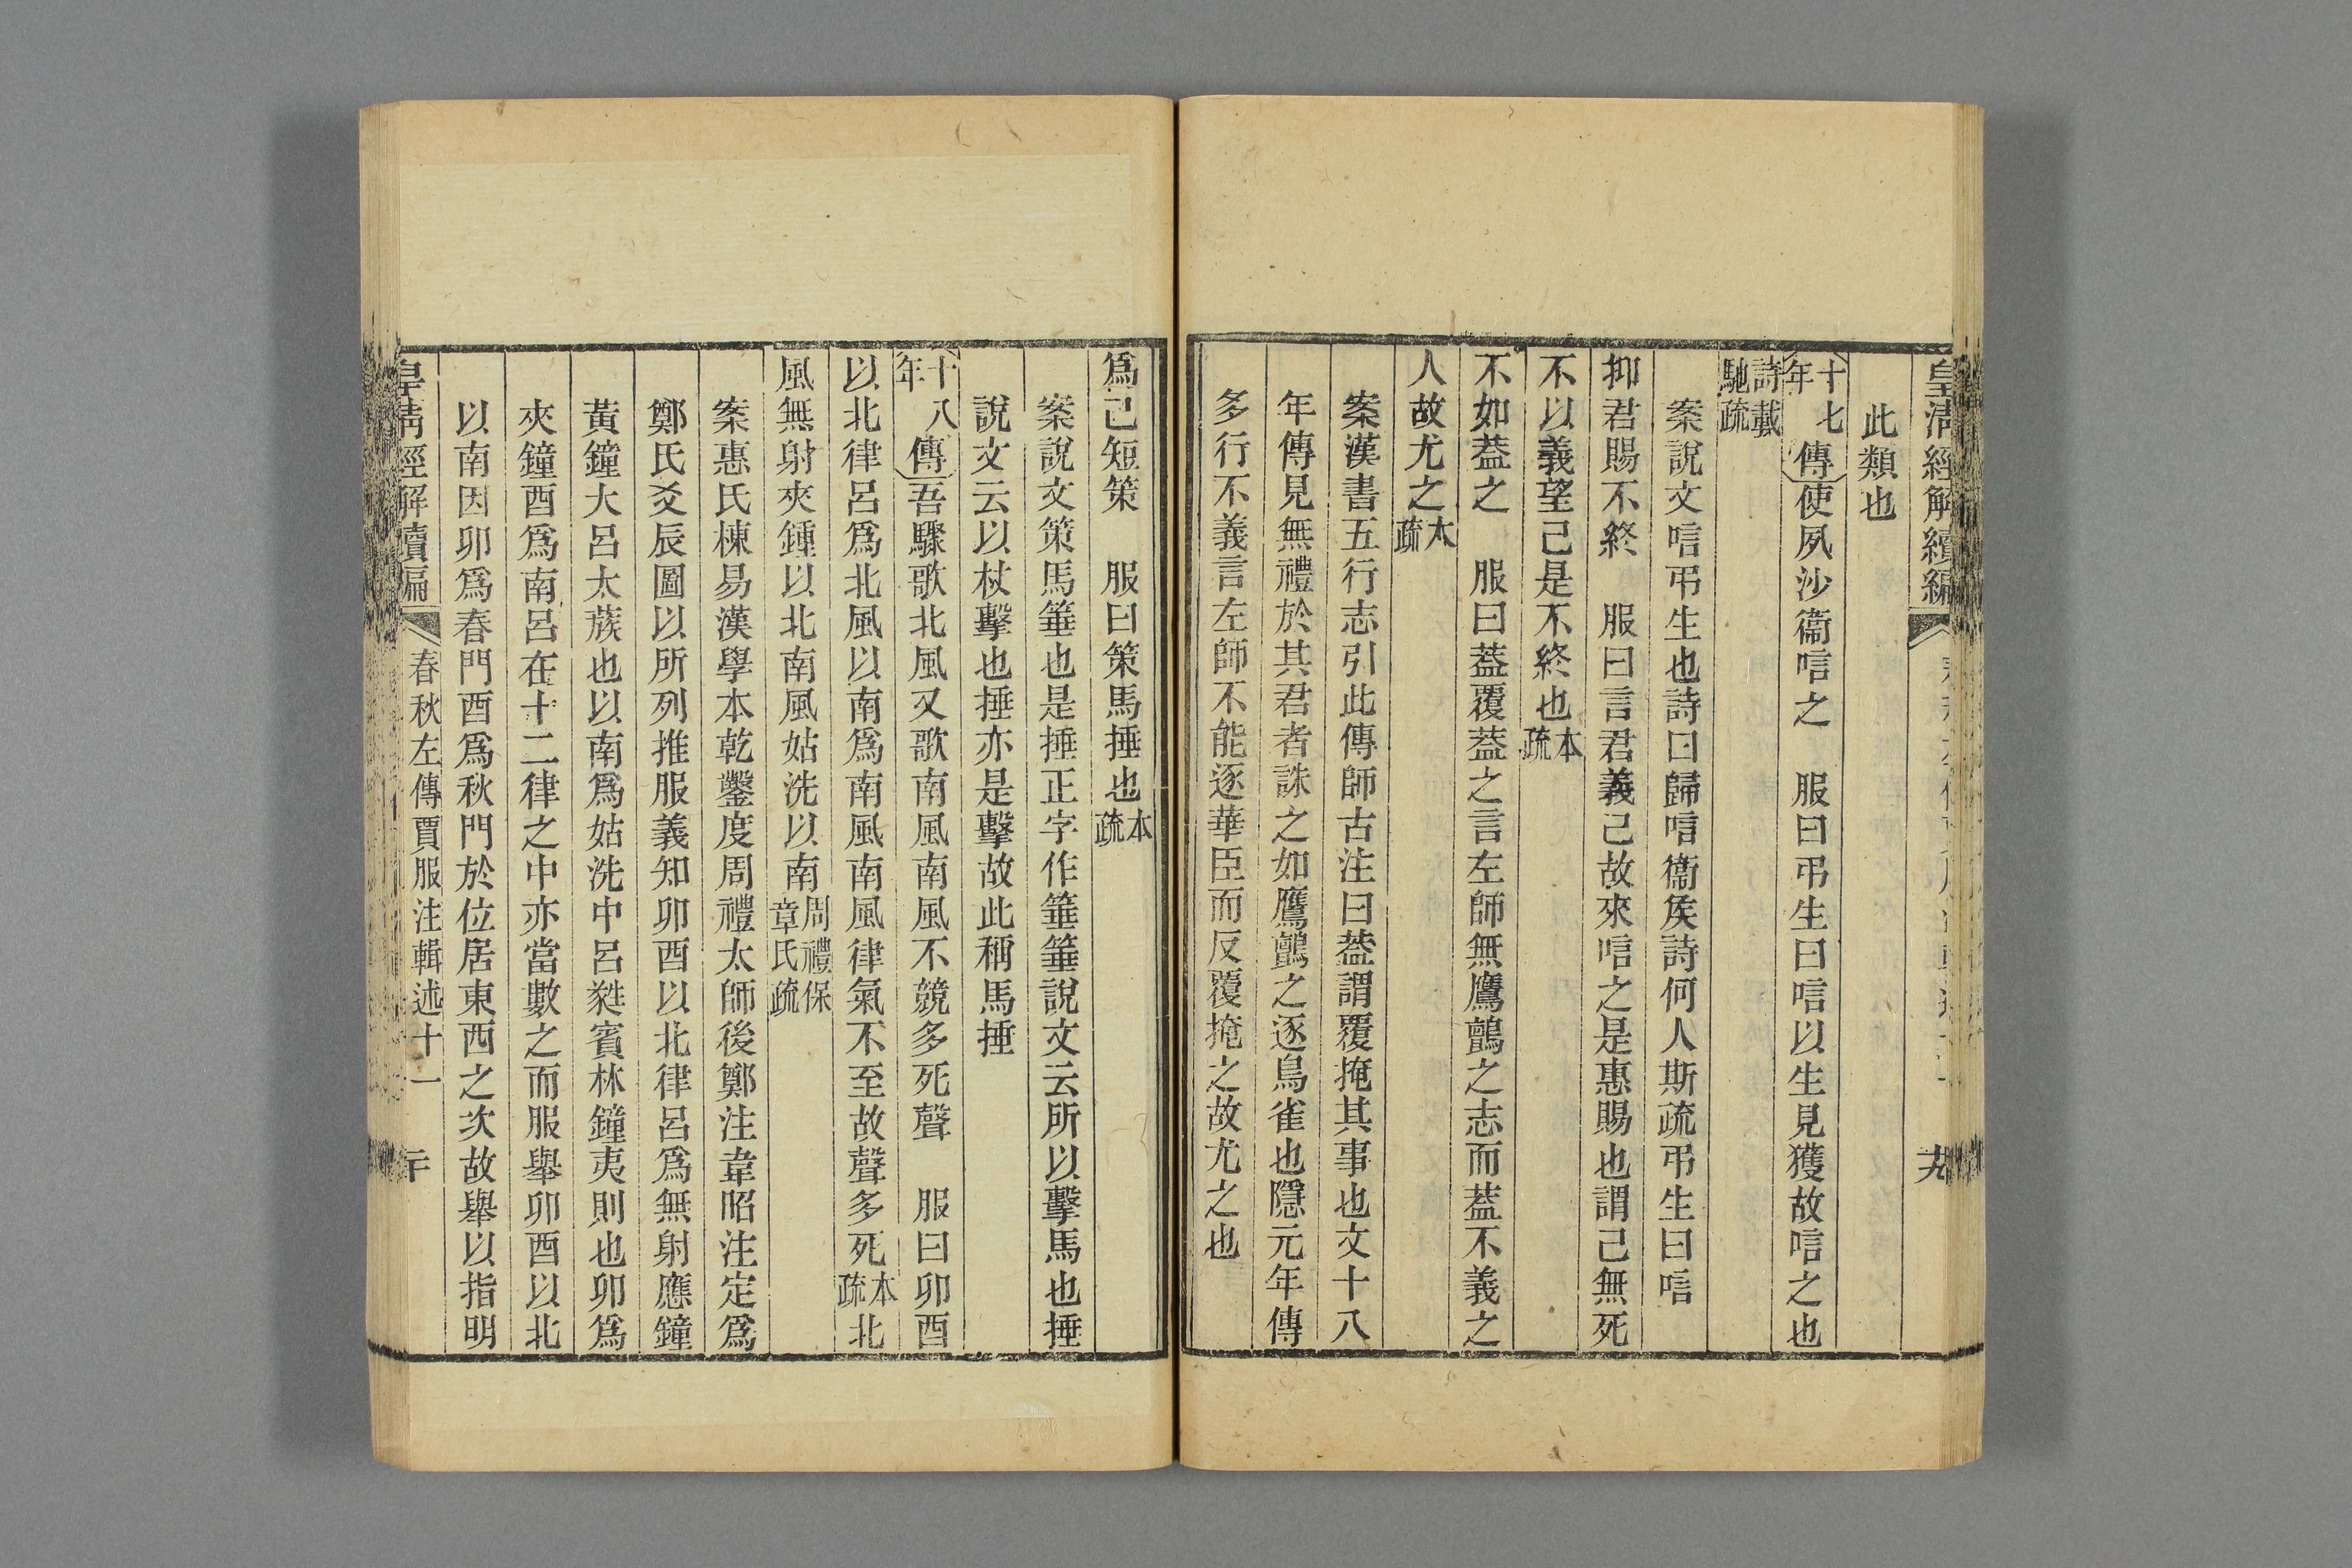 皇清經解續編
九
此類也
十七年傳使夙沙衞唁之　服曰弔生曰唁以生見獲故唁之也
詩載馳疏
案說文唁弔生也詩曰歸唁衞矦詩何人斯疏弔生曰唁
抑君賜不終　服曰言君義己故來唁之是惠賜也謂己無死
不以義望己是不終也本疏
不如葢之　服曰葢覆葢之言左師無鷹鸇之志而葢不義之
人故尤之本疏
案漢書五行志引此傳師古注曰葢謂覆掩其事也文十八
年傳見無禮於其君者誅之如鷹鸇之逐鳥雀也隱元年傳
多行不義言左師不能逐華臣而反覆掩之故尤之也
爲己短策　服曰策馬捶也本疏
案說文策馬箠也是捶正字作箠箠說文云所以擊馬也捶
說文云以杖擊也捶亦是擊故此稱馬捶
十八年傳吾驟歌北風又歌南風南風不競多死聲　服曰卯酉
以北律呂爲北風以南爲南風南風律氣不至故聲多死本疏北
風無射夾鍾以北南風姑洗以南周禮保章氏疏
案惠氏棟易漢學本乾鑿度周禮太師後鄭注韋昭注定爲
鄭氏爻辰圖以所列推服義知卯酉以北律呂爲無射應鐘
黃鐘大呂太蔟也以南爲姑洗中呂蕤賓林鐘夷則也卯爲
夾鐘酉爲南呂在十二律之中亦當數之而服舉卯酉以北
以南因卯爲春門酉爲秋門於位居東西之次故舉以指明
皇清經解續編　春秋左傳賈服注輯述十一　二十